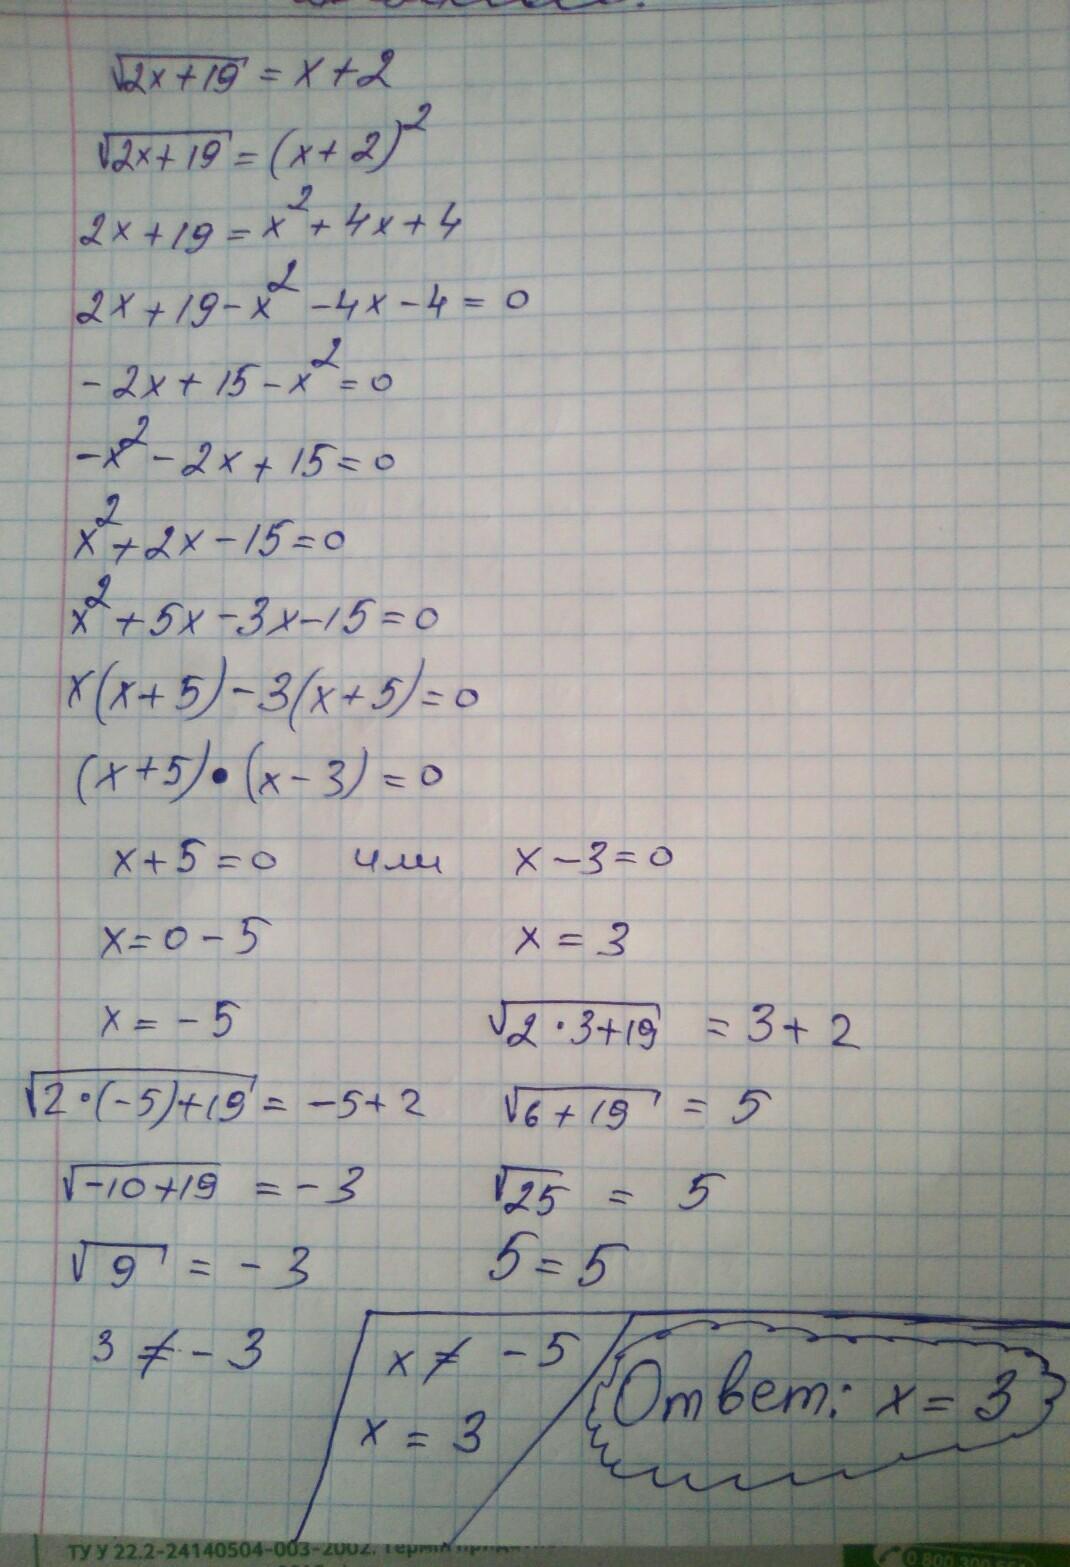 √2x+19 = x+2
√2x+19 = (x+2)²
2x+19=x²+4x+4
2x+19-x²-4x-4=0
-2x+15-x²=0
-x²-2x+15=0
x²+2x-15=0
x²+5x-3x-15=0
x(x+5)-3(x+5)=0
(x+5)•(x-3)=0
x+5=0 или x-3=0
x=0-5 x=3
x=-5 √2·3+19 = 3+2
√2·(-5)+19 = -5+2 √6+19 = 5
√-10+19 = -3 √25 = 5
√9 = -3 5=5
3≠-3 x≠ -5
x = 3
Ответ: x=3
ТУ У 22.2-24140504-003-2002.